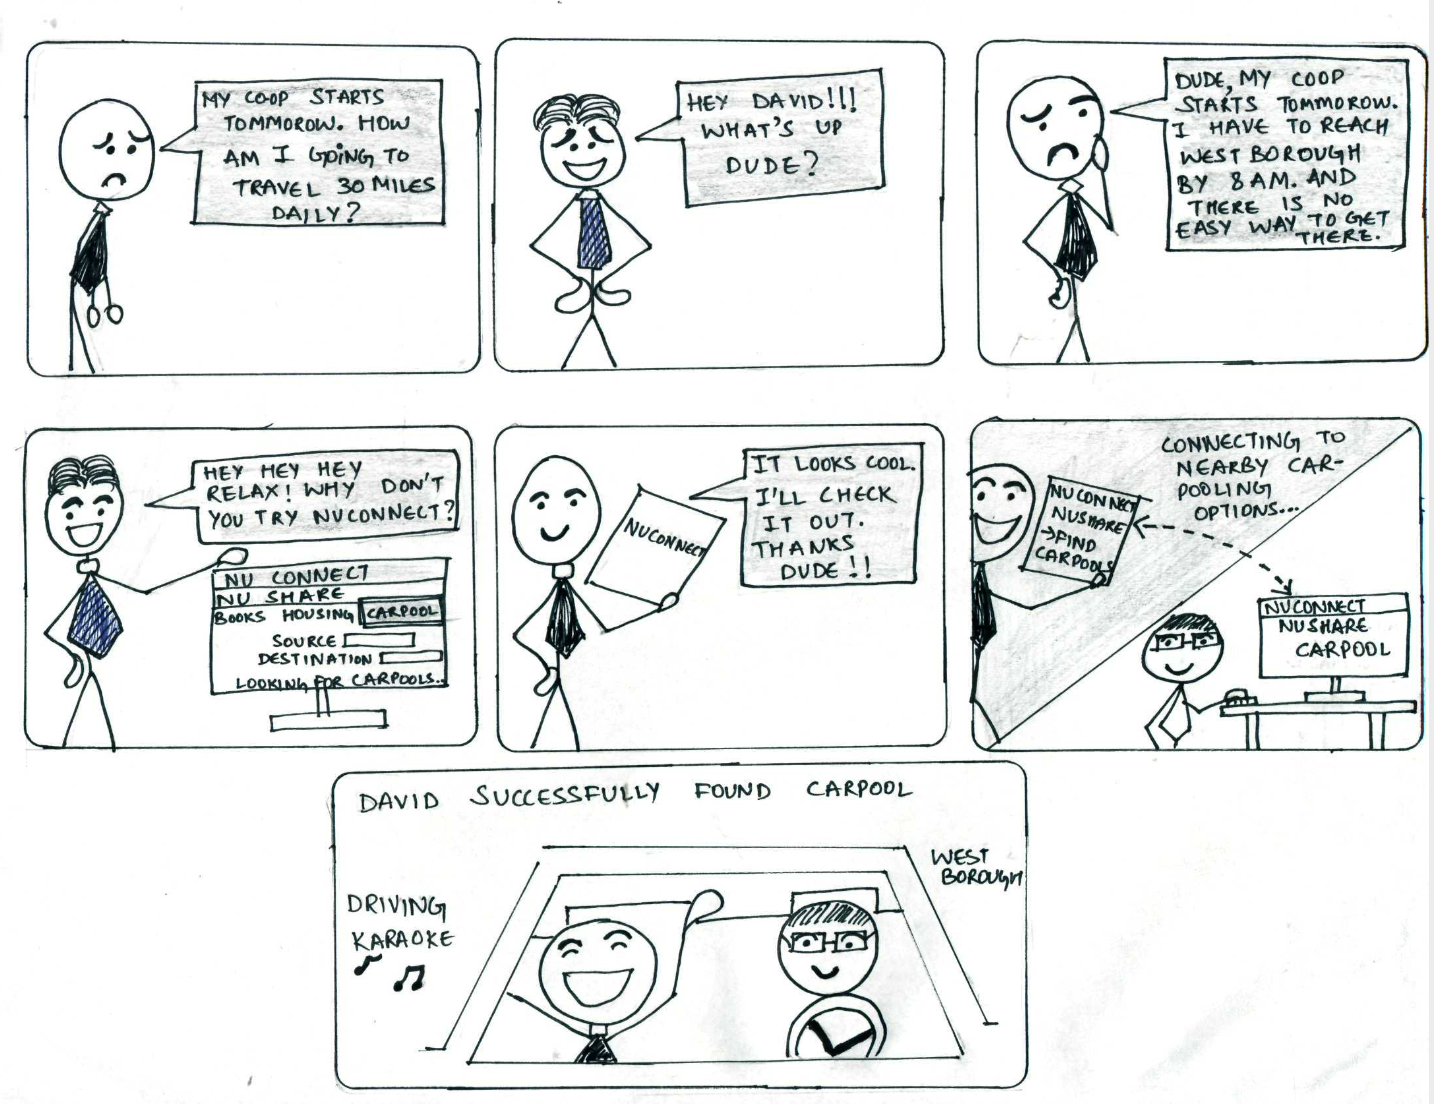 MY CO-OP STARTS
TOMMOROW. HOW
AM I GOING TO
TRAVEL 30 MILES
DAILY?
HEY DAVID!!!
WHAT'S UP
DUDE?
DUDE, MY COOP
STARTS TOMMOROW.
I HAVE TO REACH
WEST BOROUGH
BY 8 AM. AND
THERE IS NO
EASY WAY TO GET
THERE.
HEY HEY HEY
RELAX! WHY DON'T
YOU TRY NUCONNECT?
NU CONNECT
NU SHARE
BOOKS HOUSING CARPOOL
SOURCE
DESTINATION
LOOKING FOR CARPOOLS..
IT LOOKS COOL.
I'LL CHECK
IT OUT.
THANKS
DUDE!!
NUCONNECT
CONNECTING TO
NEARBY CAR-
POOLING
OPTIONS...
NUCONNECT
NUSHARE
→FIND
CARPOOLS
NUCONNECT
NUSHARE
CARPOOL
DAVID SUCCESSFULLY FOUND CARPOOL
WEST
BOROUGH
DRIVING
KARAOKE